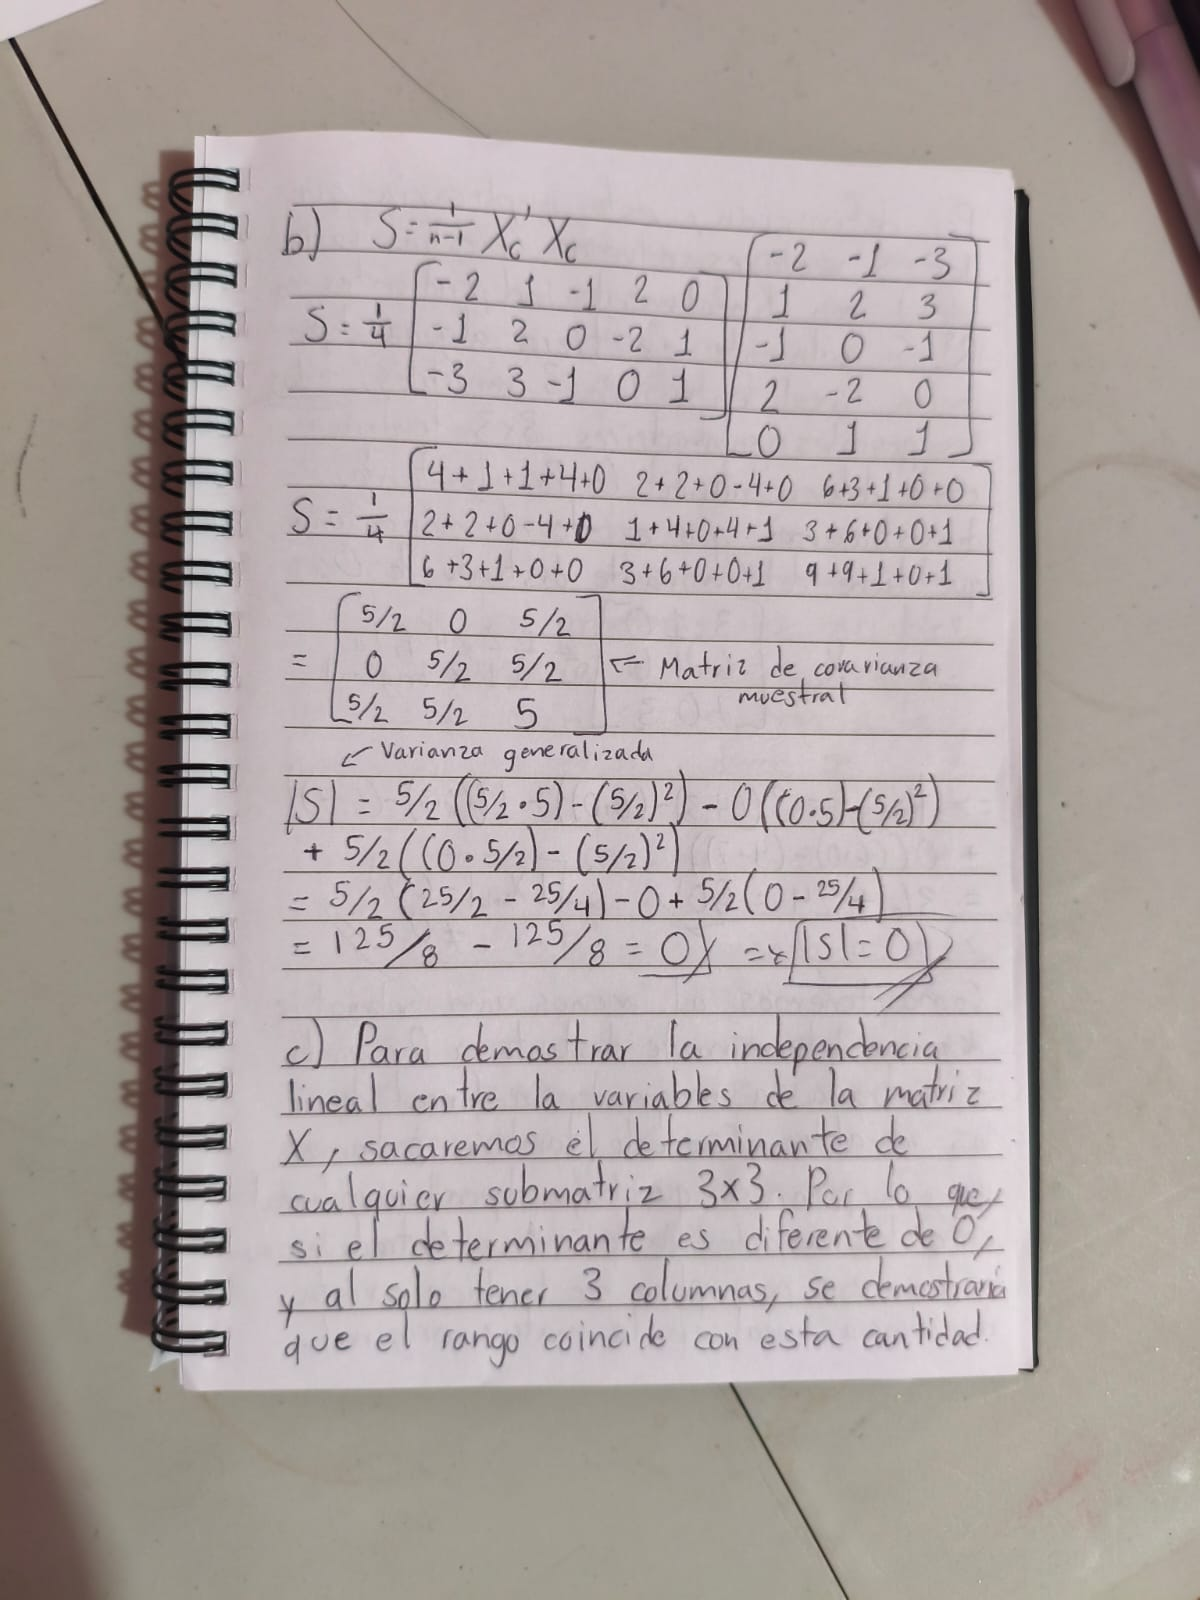 b) S = 1/n-1 Xc' Xc
S = 1/4 [-2 1 -1 2 0
-1 2 0 -2 1
-3 3 -1 0 1] [-2 -1 -3
1 2 3
-1 0 -1
2 -2 0
0 1 1]
S = 1/4 [4+1+1+4+0 2+2+0-4+0 6+3+1+0+0
2+2+0-4+0 1+4+0+4+1 3+6+0+0+1
6+3+1+0+0 3+6+0+0+1 9+9+1+0+1]
= [5/2 0 5/2
0 5/2 5/2
5/2 5/2 5] ← Matriz de covarianza
muestral
↙ Varianza generalizada
|S| = 5/2 ((5/2 • 5) - (5/2)²) - 0((0•5)-(5/2)²)
+ 5/2((0•5/2) - (5/2)²)
= 5/2 (25/2 - 25/4) - 0 + 5/2(0 - 25/4)
= 125/8 - 125/8 = 0 => |S| = 0
c) Para demostrar la independencia
lineal entre la variables de la matriz
X, sacaremos el determinante de
cualquier submatriz 3x3. Por lo que,
si el determinante es diferente de 0,
y al solo tener 3 columnas, se demostraría
que el rango coincide con esta cantidad.